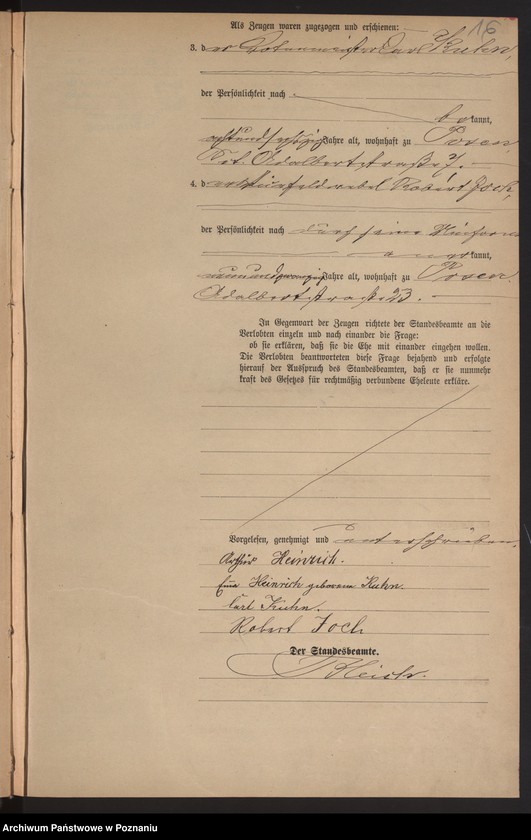 16
Als Zeugen waren zugezogen und erschienen:
3. der Botenmeister Carl Kuhn,
der Persönlichkeit nach
bekannt,
Jahre alt, wohnhaft zu Posen,
Adalbertstraße 7.
4. der Robert Joch,
der Persönlichkeit nach durch seine Uniform
anerkannt,
neunundzwanzig Jahre alt, wohnhaft zu Posen,
Adalbertstraße 23.
In Gegenwart der Zeugen richtete der Standesbeamte an die
Verlobten einzeln und nach einander die Frage:
ob sie erklären, daß sie die Ehe mit einander eingehen wollen.
Die Verlobten beantworteten diese Frage bejahend und erfolgte
hierauf der Ausspruch des Standesbeamten, daß er sie nunmehr
kraft des Gesetzes für rechtmäßig verbundene Eheleute erkläre.
Vorgelesen, genehmigt und unterschrieben.
Arthur Heinrich.
Heinrich geborene Kuhn.
Carl Kuhn.
Robert Joch
Der Standesbeamte.
Archiwum Państwowe w Poznaniu